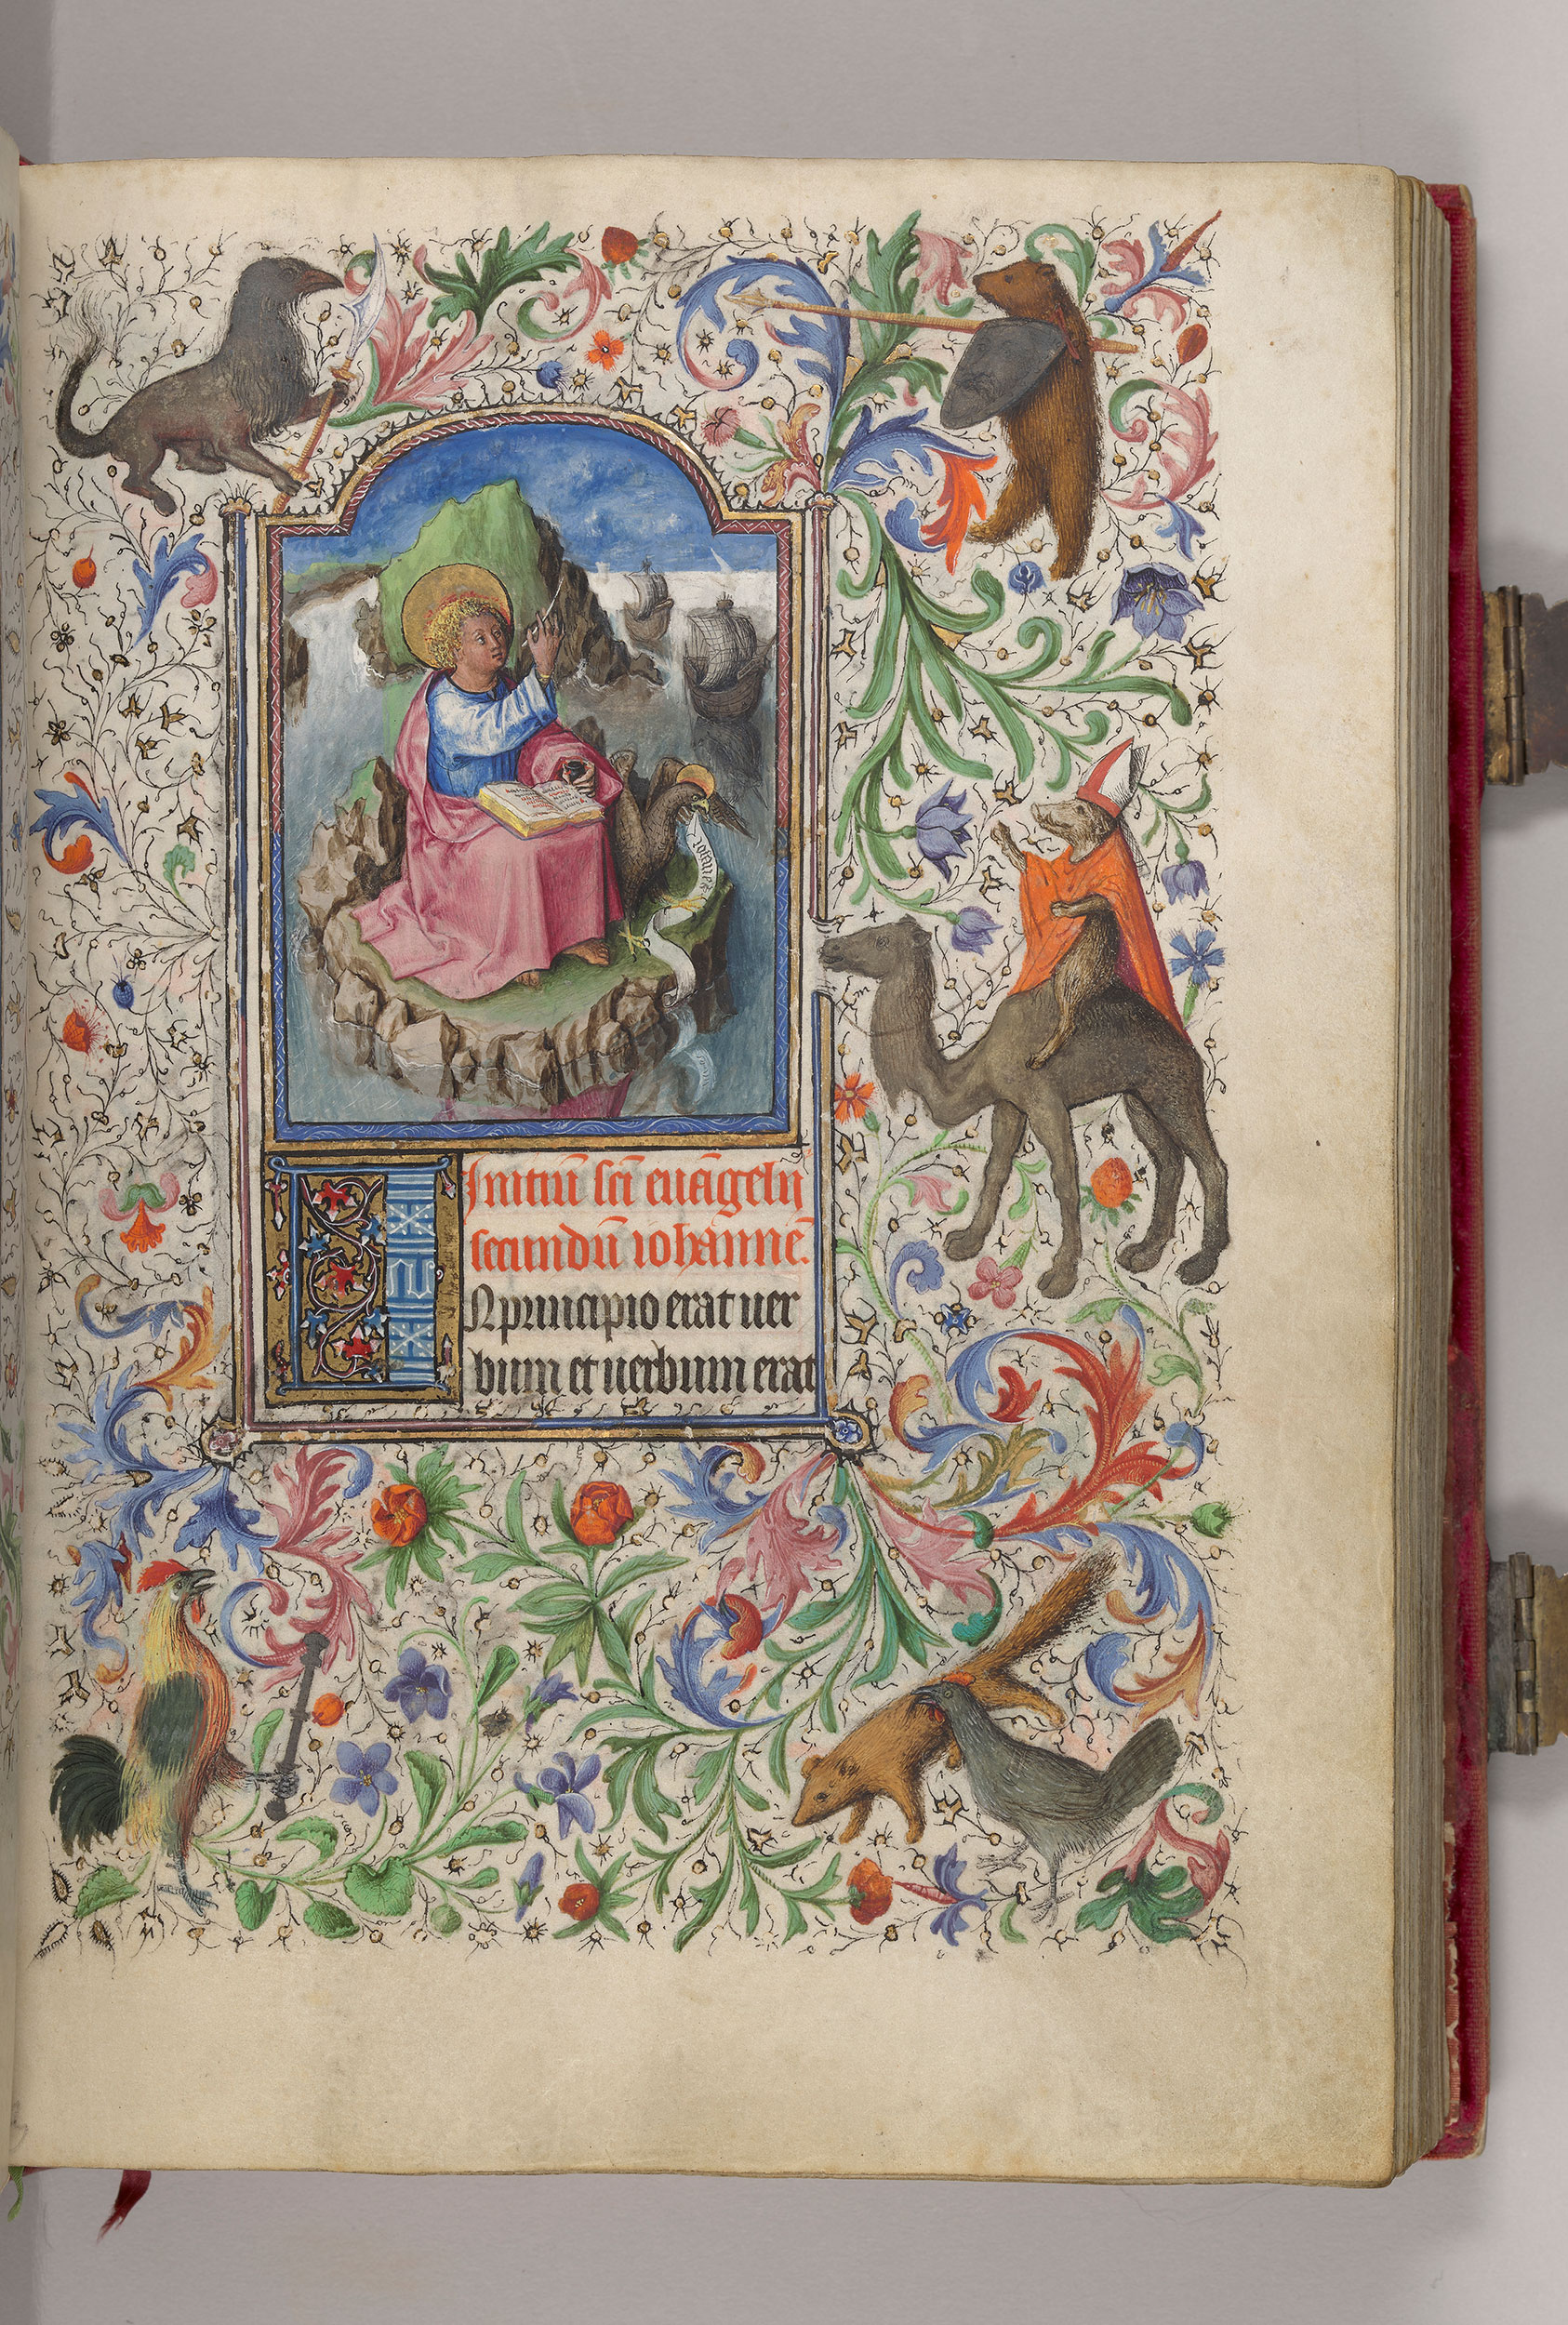 iohannes
Initiū sci euāgelij
secundū iohannē.
IN principio erat uer
bum et uerbum erat